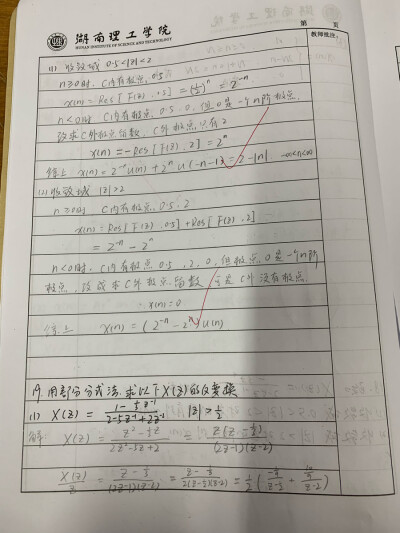 湖南理工学院
HUNAN INSTITUTE OF SCIENCE AND TECHNOLOGY
第 页
教师批注:
(1) 收敛域 0.5<|z|<2
n≥0时, C内有极点 0.5
x(n) = Res[F(z), 0.5] = (1/2)^n = 2^-n
n<0时, C内有极点 0.5、0, 但0是一个n阶极点,
改求C外极点留数, C外极点只有2
x(n) = -Res[F(z), 2] = 2^n
综上 x(n) = 2^-n u(n) + 2^n u(-n-1) = 2^-|n| -∞<n<∞
(2) 收敛域 |z|>2
n≥0时 C内有极点 0.5, 2
x(n) = Res[F(z), 0.5] + Res[F(z), 2]
= 2^-n - 2^n
n<0时, C内有极点 0.5, 2, 0, 但极点0是一个n阶
极点, 改成求C外极点留数 C外没有极点
x(n) = 0
综上 x(n) = (2^-n - 2^n) u(n)
用部分分式法, 求以下X(z)的反变换
(1) X(z) = (1 - 1/3 z^-1)/(2-5z^-1+2z^-2) |z|>1/2
解: X(z) = (z^2 - 1/3 z)/(2z^2-5z+2) = z(z-1/3)/((2z-1)(z-2))
X(z)/z = (z-1/3)/((2z-1)(z-2)) = (z-1/3)/(2(z-1/2)(z-2)) = 1/2